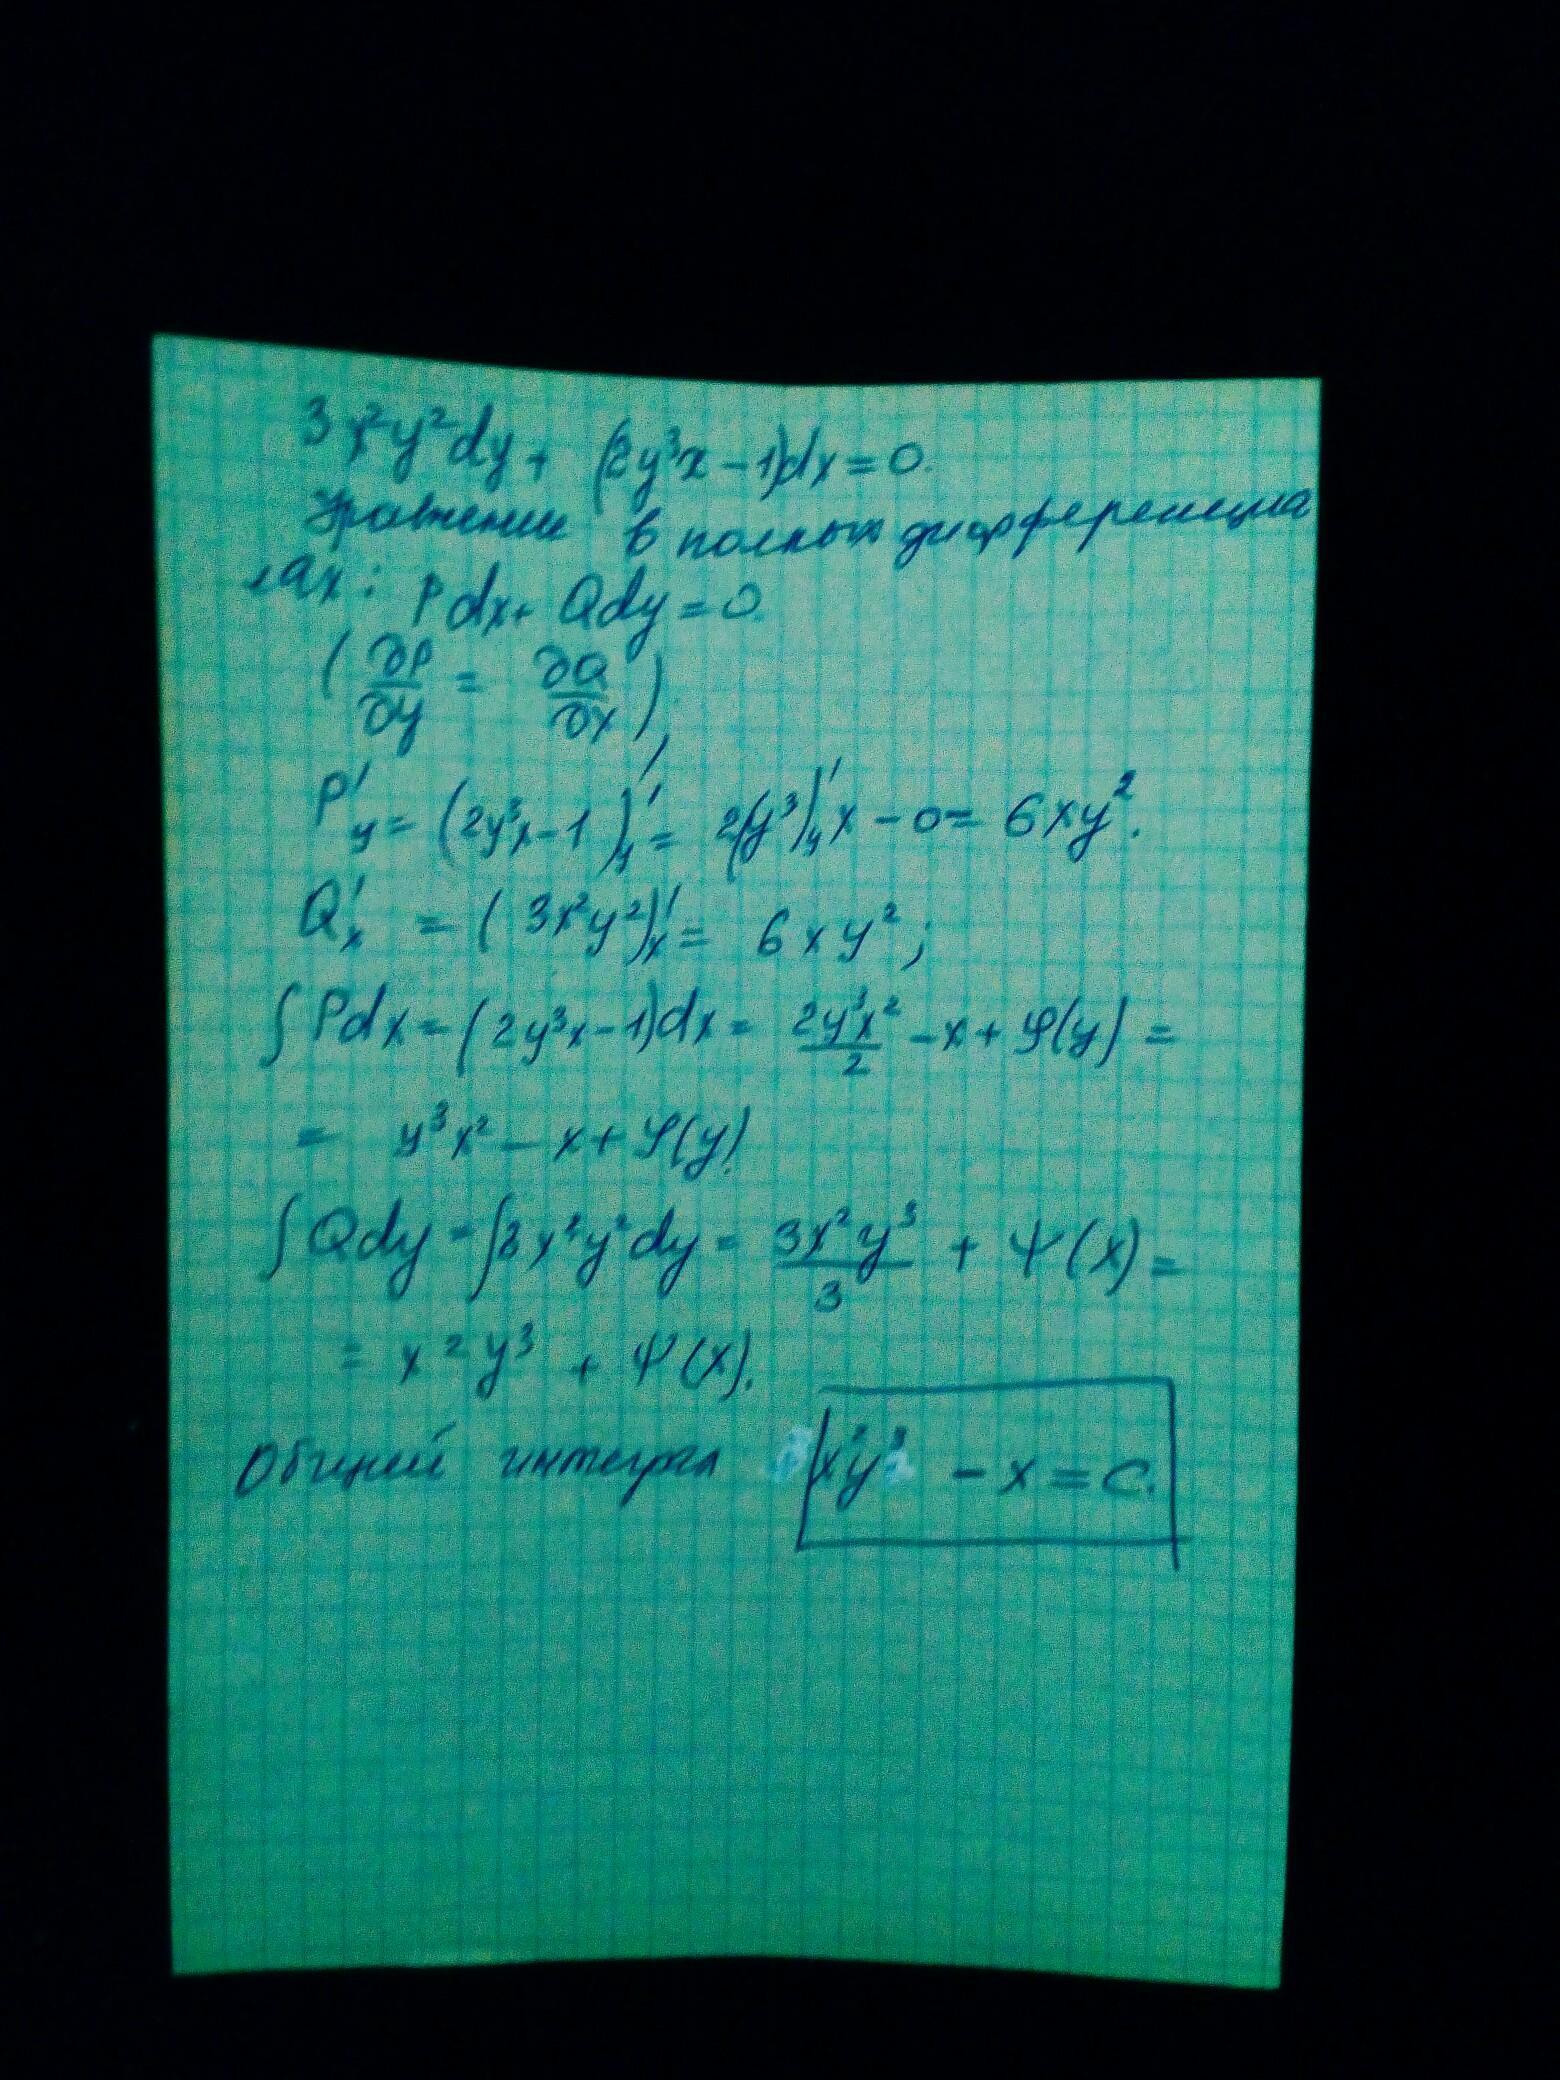 3x²y²dy + (2y³x - 1)dx = 0.
Уравнение в полных дифференциа
лах: Pdx + Qdy = 0.
(∂P/∂y = ∂Q/∂x),
P'y = (2y³x - 1)'y = 2(y³)'y x - 0 = 6xy².
Q'x = (3x²y²)'x = 6xy²;
∫Pdx = (2y³x - 1)dx = 2y³x²/2 - x + φ(y) =
= y³x² - x + φ(y).
∫Qdy = ∫3x²y²dy = 3x²y³/3 + ψ(x) =
= x²y³ + ψ(x).
Общий интеграл x²y³ - x = C.